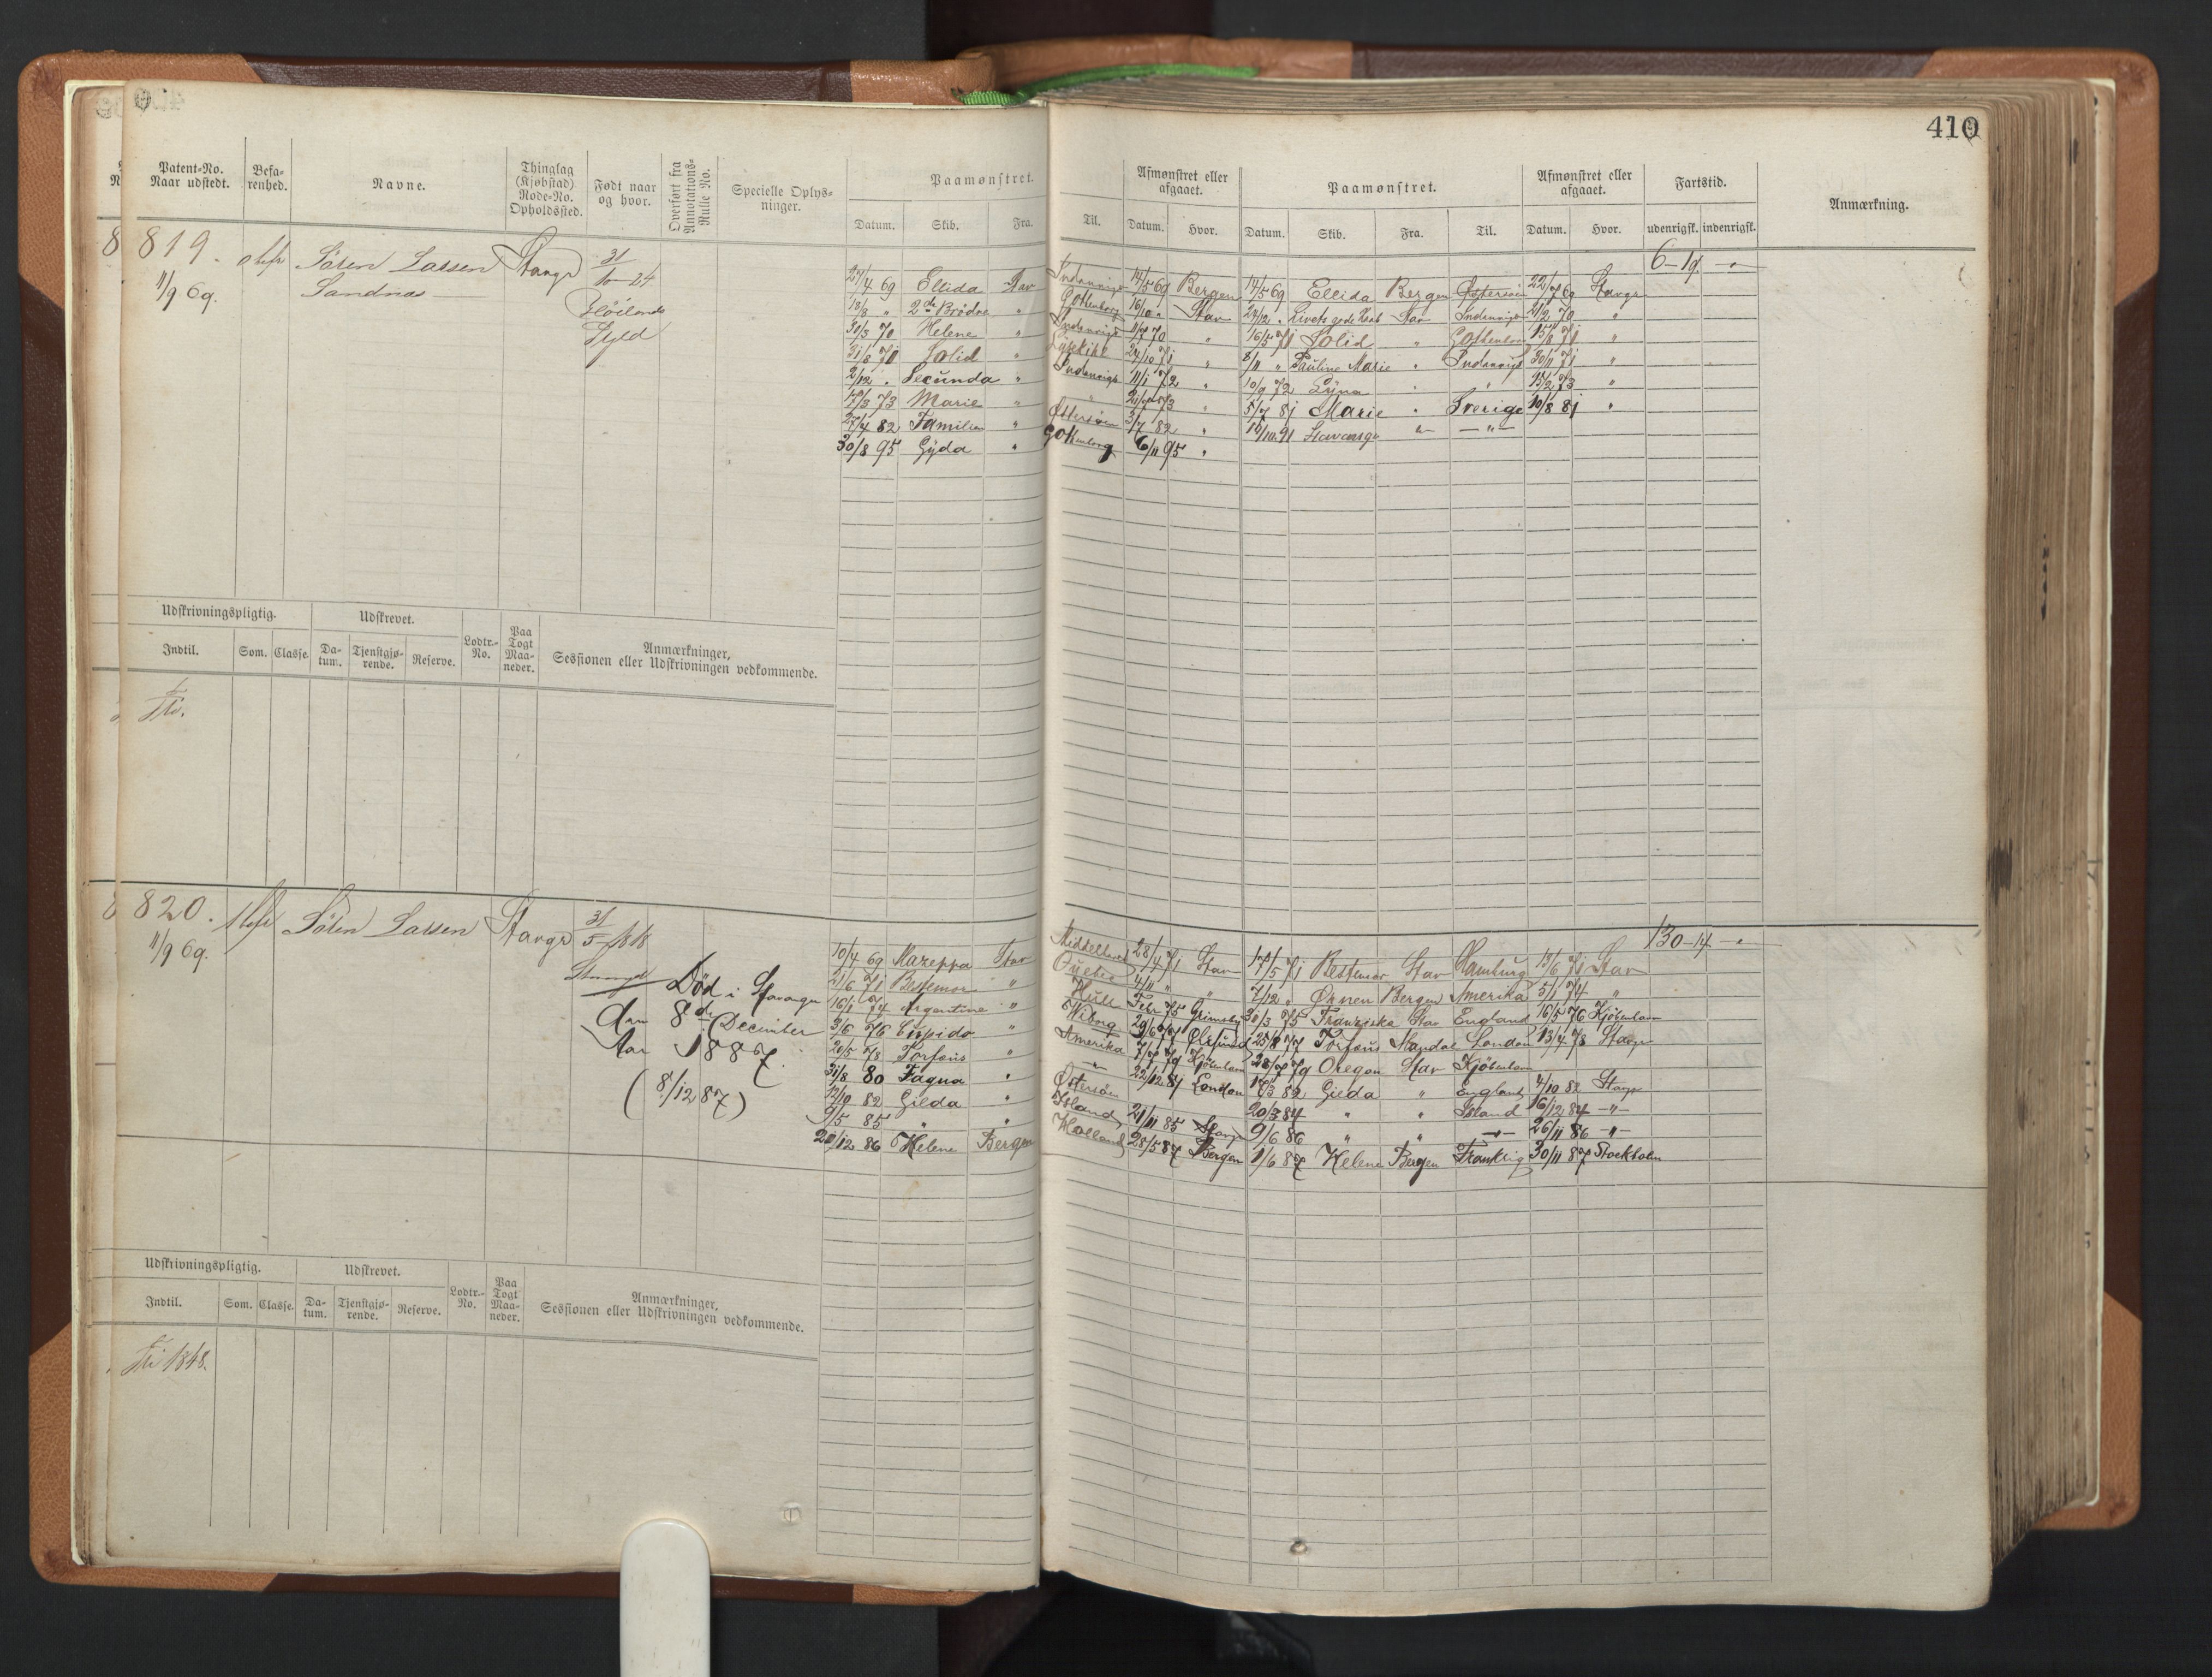 410
Patent-No. Naar udstedt.
Befa- renhed.
Navne.
Thinglag (Kjøbstad) Rode-No. Opholdssted.
Født naar og hvor.
Overført fra Annotations- Rulle No.
Specielle Oplys- ninger.
Paamønstret.
Datum. Skib. Fra. Til.
Afmønstret eller afgaaet.
Datum. Hvor.
Paamønstret.
Datum. Skib. Fra. Til.
Afmønstret eller afgaaet.
Datum. Hvor.
Fartstid.
udenrigsk. indenrigsk.
Anmærkning.
819. Sören Larsen Stavgr 31/10-24
11/9 69. Sandnas
6-19
27/4 69 Ellida Stav Indenrigs 14/5 69 Bergen 14/5 69 Ellida Bergen Østersöen 22/7 69 Stavgr
18/8 " 2de Brödre " Gottenborg 16/10 " Stav 24/12 " Livets gode Haab Stav Indenrigs 21/2 70 "
30/3 70 Helene " Indenrigs 11/7 70 " 16/5 71 Solid " Gottenbor 15/8 71 "
31/6 70 Solid " Lysekihl 24/10 71 " 8/11 " Pauline Marie " Indenrigs 30/11 71 "
2/12 " Secunda " Indenrigs 11/1 72 " 10/9 72 Lyna " " 15/2 73 "
7/3 73 Marie " " 21/7 73 " 5/7 81 Marie " Sverige 10/8 81 "
27/4 82 Familien " Østersöen 3/7 82 " 16/10 91 Stavangr " — " —
30/8 95 Gyda " Gottenborg 6/11 95 "
Udskrivningspligtig.
Udskrevet.
Lodtr.- No.
Paa Togt Maa- neder.
Anmærkninger, Sessionen eller Udskrivningen vedkommende.
Indtil. Som. Classe. Da- tum. Tjenstgjø- rende. Reserve.
Fri.
820. Sören Larsen Stavgr 31/5 1818
11/9 69.
130-14
Död i Stavanger
den 8de December
Aar 1887.
(8/12 87)
10/4 69 Mazeppa Stav Middelhavet 28/4 71 Stav 17/5 71 Bestemor Stav Hamburg 13/6 71 Stav
21/6 71 Bestemor " Quebec 4/11 " " 7/12 " Ørnen Bergen Amerika 5/1 74 "
16/1 74 Argentina " Hull Febr 75 Grimsby 30/3 75 Franziska Stav England 16/5 76 Kjöbenhavn
3/6 76 Cupido " Wiborg 29/6 77 25/8 77 Torfæus Mandal London 13/4 78 Stavgr
20/5 78 Torfæus " Amerika 7/7 79 Kjöbenhavn 28/7 79 Oregon Stav Kjöbenhavn
31/8 80 Fagna " — " — 22/12 81 London 17/3 82 Gilda " England 4/10 82 Stavgr
12/10 82 Gilda " Østersöen 20/3 84 " " Island 16/12 84 — " —
9/5 85 " " Island 21/11 85 Stavgr 9/6 86 " " — " — 26/11 86 — " —
20/12 86 Helene Bergen Holland 28/5 87 Bergen 1/6 87 Helene Bergen Frankrig 30/11 87 Stockholm
Udskrivningspligtig.
Udskrevet.
Lodtr.- No.
Paa Togt Maa- neder.
Anmærkninger, Sessionen eller Udskrivningen vedkommende.
Indtil. Som. Classe. Da- tum. Tjenstgjø- rende. Reserve.
Fri 1848.